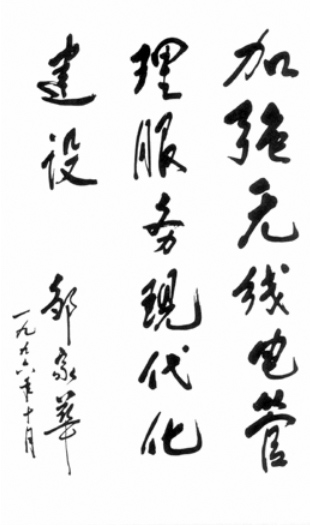 加强无线电管
理服务现代化
建设
邹家华
一九九六年十月